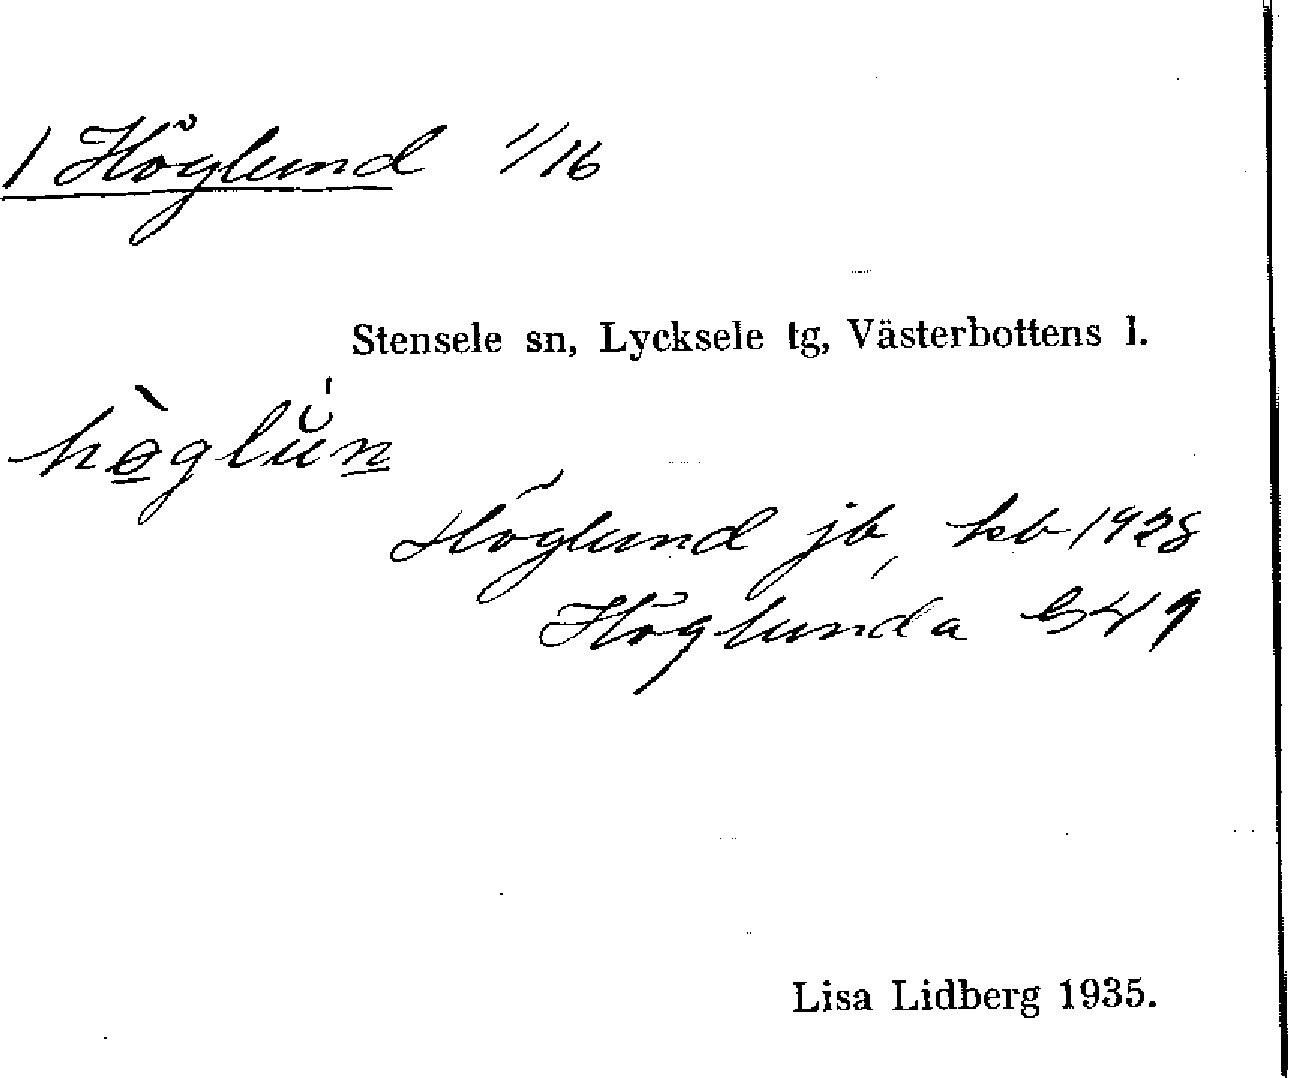 1 Höglund 1/16
Stensele sn, Lycksele tg, Västerbottens l.
hø̀glŭn
Höglund jb, kb 1928
Höglunda G49
Lisa Lidberg 1935.